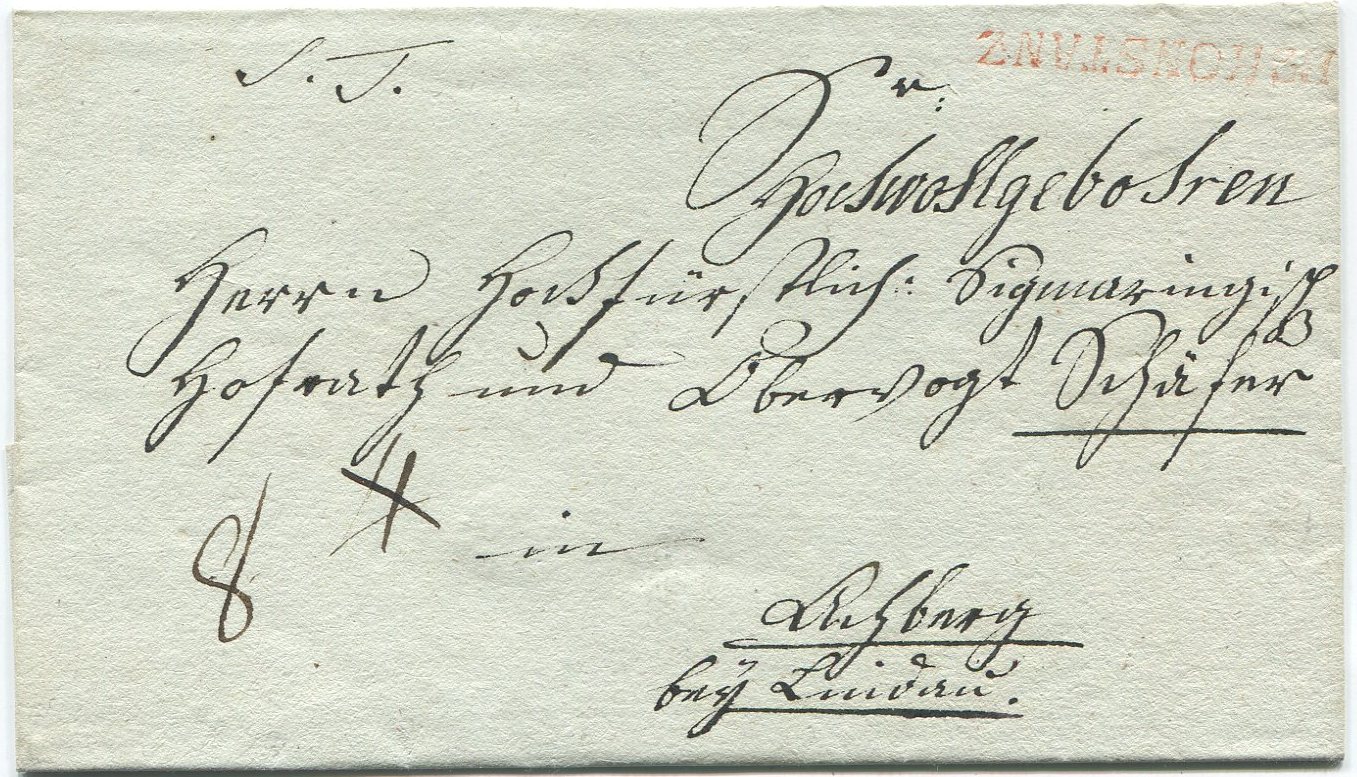 R. 2. KONSTANZ
S. T.
Sr:
Hochwohlgebohren
Herrn Hochfürstlich: Sigmaringisch
Hofrath und Obervogt Schäfer
8 4
in
Achberg
bey Lindau.